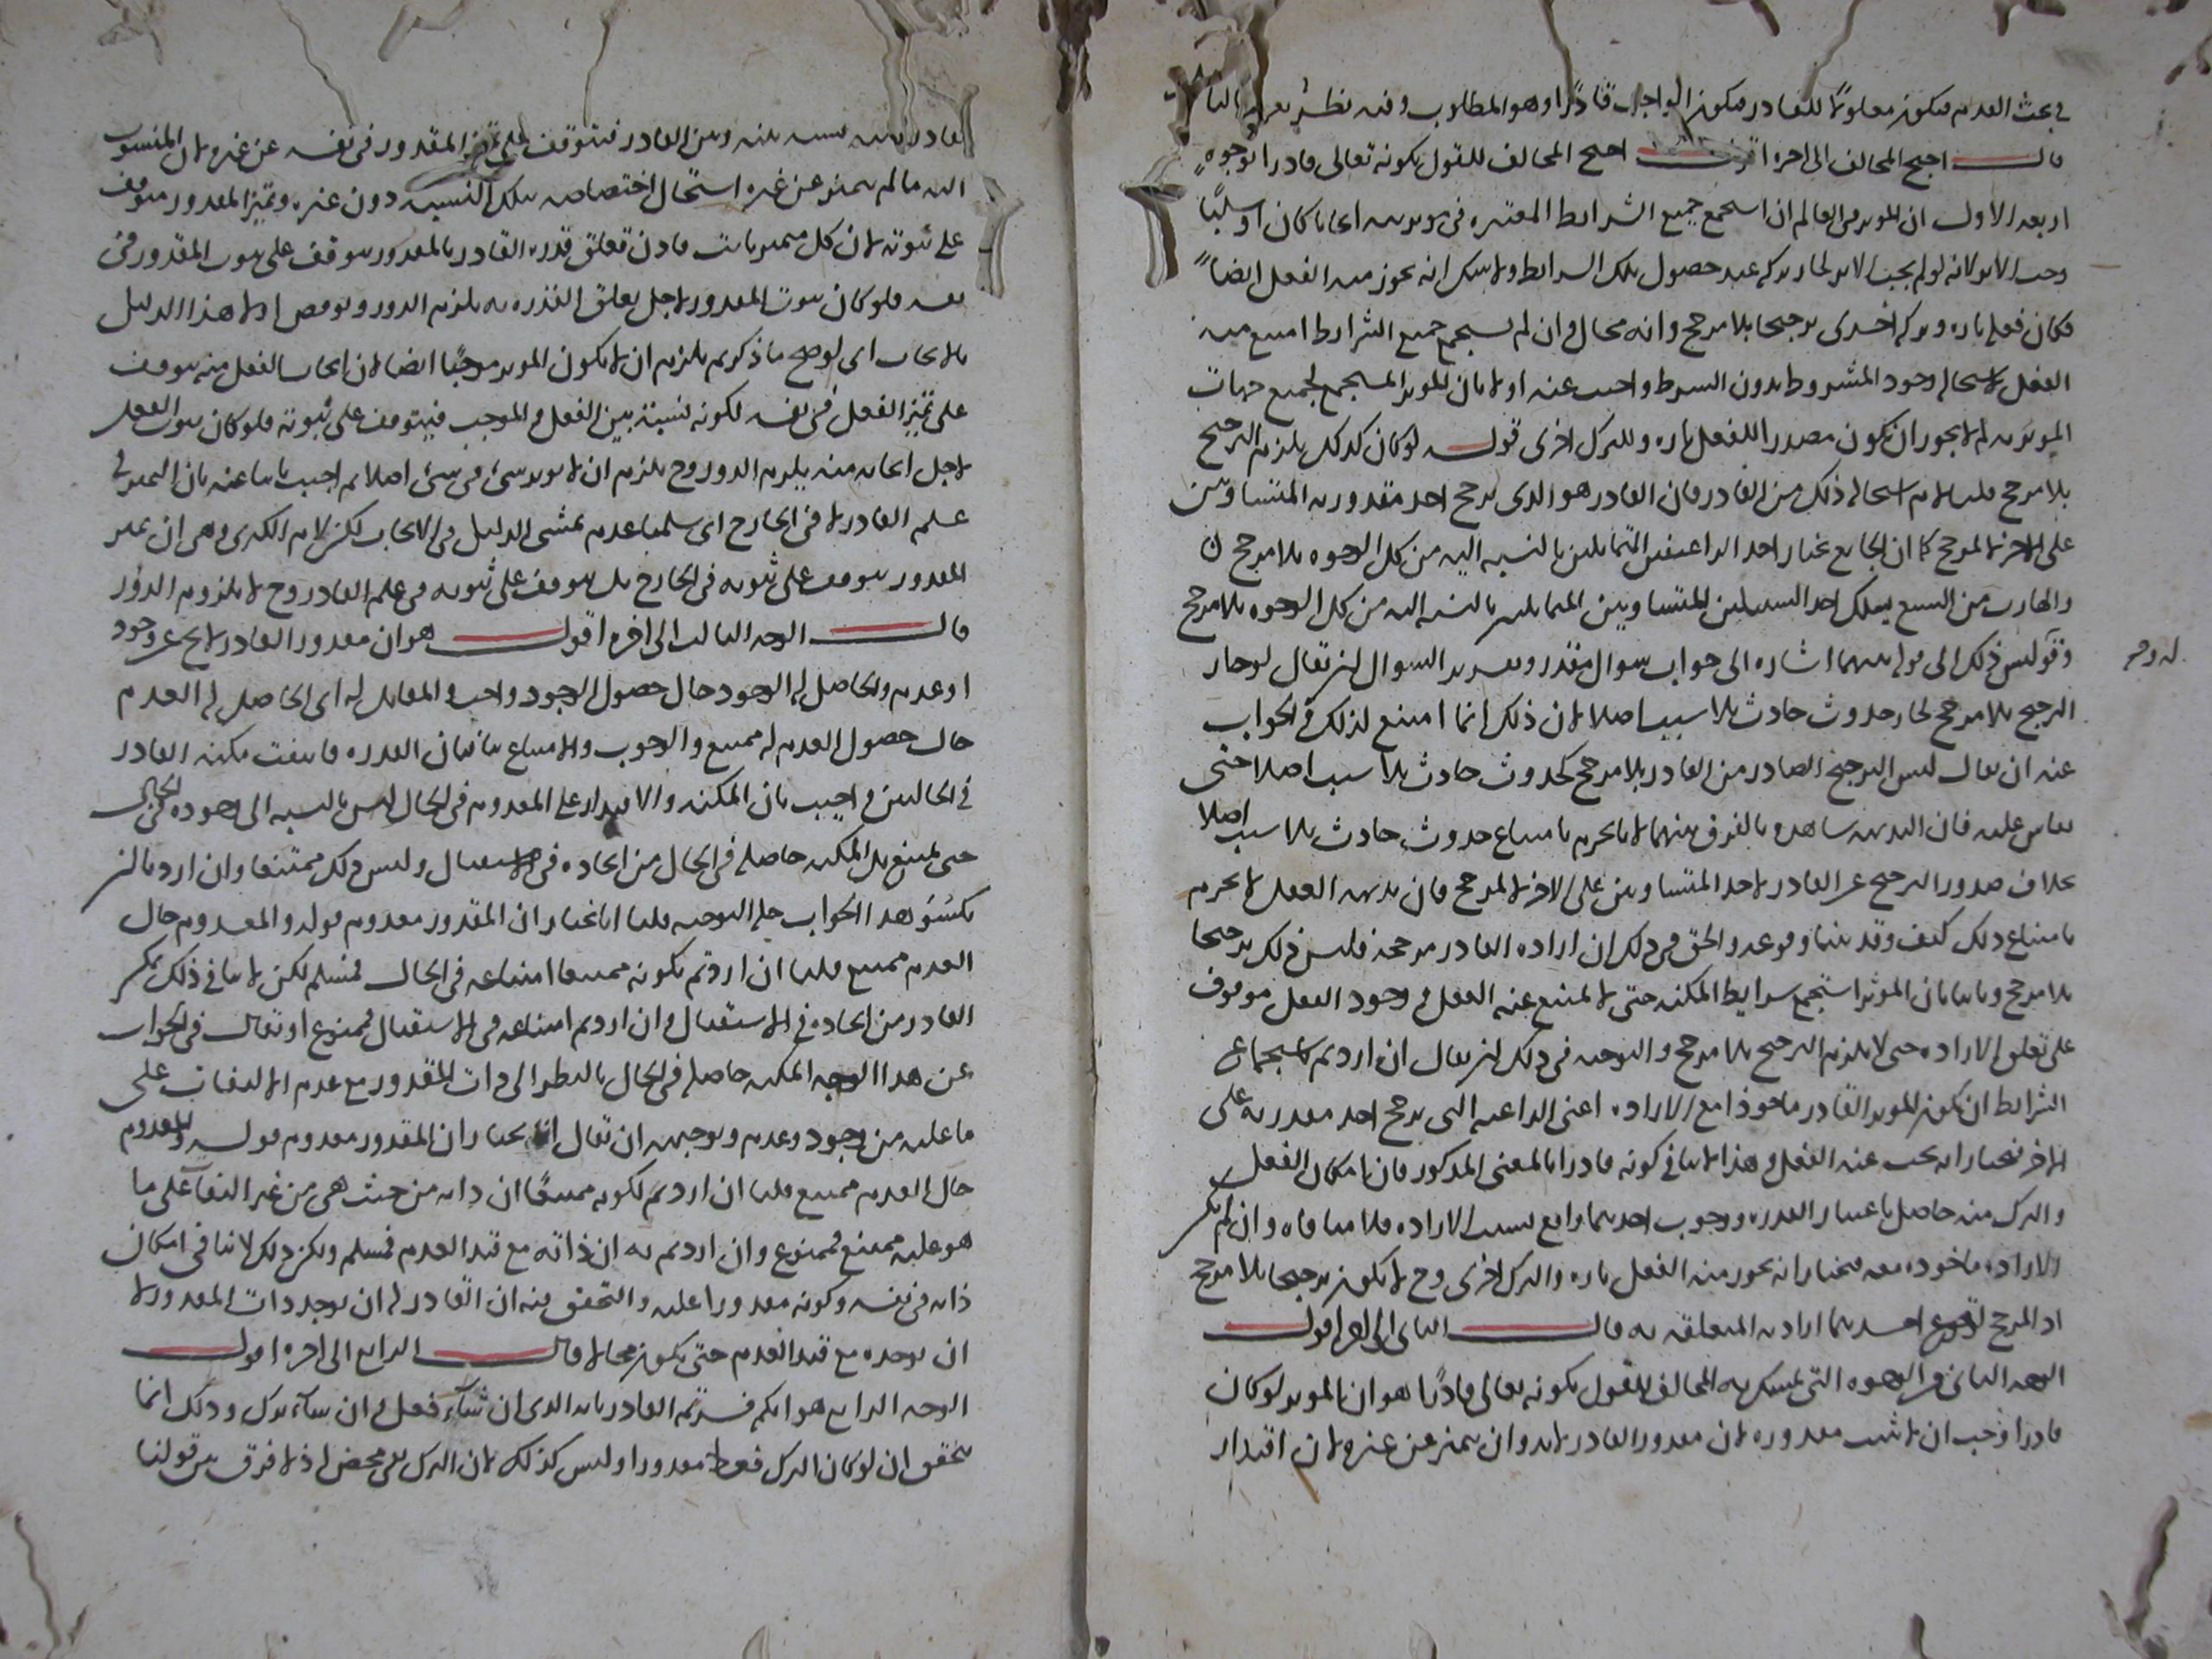 في بحث القدم فيكون معلولا للقادر فيكون الواجب قادرا وهو المطلوب وفيه نظر
قال احتج المخالف الى اخره اقول احتج المخالف للقول بكونه تعالى قادرا بوجوه
اربعة الاول ان المؤثر في العالم ان استجمع جميع الشرايط المعتبرة في مؤثريته ايجابا كان او سلبا
وجب الاثر لانه لو لم يجب الاثر لجاز تركه عند حصول تلك الشرايط ولا شك انه يجوز منه الفعل ايضا
فكان فعله تارة وتركه اخرى ترجيحا بلا مرجح وانه محال وان لم يستجمع جميع الشرايط امتنع منه
الفعل لاستحالة وجود المشروط بدون الشرط واجيب عنه اولا بان المؤثر المستجمع لجميع جهات
المؤثرية لم لا يجوز ان يكون مصدرا للفعل تارة وللترك اخرى قوله لو كان كذلك يلزم الترجيح
بلا مرجح قلنا لا نم استحالة ذلك من القادر فان القادر هو الذي يرجح احد مقدوريه المتساويين
على الاخر لا لمرجح كما ان الجايع يختار احد الرغيفين المتماثلين بالنسبة اليه من كل الوجوه بلا مرجح
والهارب من السبع يسلك احد السبيلين المتساويين المتماثلين بالنسبة اليه من كل الوجوه بلا مرجح
وقوله ليس ذلك الى قوله بينهما اشارة الى جواب سؤال مقدر وتقرير السؤال ان يقال لو جاز
الترجيح بلا مرجح لجاز حدوث حادث بلا سبب اصلا لان ذلك انما امتنع لذلك والجواب
عنه ان يقال ليس الترجيح الصادر من القادر بلا مرجح كحدوث حادث بلا سبب اصلا حتى
يقاس عليه فان البديهة شاهدة بالفرق بينهما لانا نجزم بامتناع حدوث حادث بلا سبب اصلا
بخلاف صدور الترجيح عن القادر لاحد المتساويين على الاخر لا لمرجح فان بديهة العقل لا تجزم
بامتناع ذلك كيف وقد بينا وقوعه والحق في ذلك ان ارادة القادر مرجحة فليس ذلك ترجيحا
بلا مرجح وثانيا بان المؤثر استجمع شرايط المكنة حتى لا يمتنع عنه الفعل و وجود الفعل موقوف
على تعلق الارادة حتى لا يلزم الترجيح بلا مرجح والتوجيه في ذلك ان يقال ان اردتم باستجماع
الشرايط ان يكون المؤثر القادر ماخوذا مع الارادة اعني الداعية التي ترجح احد مقدوريه على
الاخر فنختار انه يجب عنه الفعل وهذا لا ينافي كونه قادرا بالمعنى المذكور فان امكان الفعل
والترك منه حاصل باعتبار القدرة ووجوب احدهما واقع بسبب الارادة فلا منافاة وان لم تكن
الارادة ماخوذة معه فنختار انه يجوز منه الفعل تارة والترك اخرى وح لا يكون ترجيحا بلا مرجح
اذ المرجح احدهما ارادته المتعلقة به قال الثاني الى اخره اقول
الوجه الثاني من الوجوه التي تمسك بها المخالف للقول بكونه تعالى قادرا هو ان المؤثر لو كان
قادرا وجب ان لا يثبت مقدوره لان مقدور القادر لا بد وان يتميز عن غيره لان اقتدار
القادر نسبة بينه وبين القادر فيتوقف على تميز المقدور في نفسه عن غيره لان المنسوب
اليه ما لم يتميز عن غيره استحال اختصاصه بتلك النسبة دون غيره وتميز المقدور متوقف
على ثبوته لان كل متميز ثابت فاذن تعلق قدرة القادر بالمقدور يتوقف على ثبوت المقدور في
نفسه فلو كان ثبوت المقدور لاجل تعلق القدرة به يلزم الدور ونوقض اولا هذا الدليل
بالايجاب اي لو صح ما ذكرتم يلزم ان لا يكون المؤثر موجبا ايضا لان ايجاب الفعل منه يتوقف
على تميز الفعل في نفسه لكونه نسبة بين الفعل والموجب فيتوقف على ثبوته فلو كان ثبوت الفعل
لاجل ايجابه منه يلزم الدور وح يلزم ان لا يؤثر شئ في شئ اصلا ثم اجيب ثانيا عنه بان التميز في
علم القادر لا في الخارج اي سلمنا عدم تمشي الدليل في الايجاب لكن لا نم الكبرى وهي ان تميز
المقدور يتوقف على ثبوته في الخارج بل يتوقف على ثبوته في علم القادر وح لا يلزم الدور
قال الوجه الثالث الى اخره اقول هو ان مقدور القادر لا يخ عن وجود
او عدم والحاصل له الوجود حال حصول الوجود واجب والمقابل له اي الحاصل له العدم
حال حصول العدم له ممتنع والوجوب والامتناع ينافيان القدرة فانتفت مكنة القادر
في الحالين واجيب بان المكنة والاقتدار على المعدوم في الحال ليس بالنسبة الى وجوده في الحال
حتى يمتنع بل المكنة حاصلة في الحال من ايجاده في الاستقبال وليس ذلك ممتنعا وان اردنا ان
نكسو هذا الجواب حلة التوجيه قلنا انا نختار ان المقدور معدوم قوله والمعدوم حال
العدم ممتنع قلنا ان اردتم بكونه ممتنعا امتناعه في الحال فمسلم لكن لا ينافي ذلك تمكن
القادر من ايجاده في الاستقبال وان اردتم امتناعه في الاستقبال فممنوع او يقال في الجواب
عن هذا الوجه المكنة حاصلة في الحال بالنظر الى ذات المقدور مع عدم الالتفات على
ما عليه من وجود وعدم وتوجيهه ان يقال انا نختار ان المقدور معدوم قوله والمعدوم
حال العدم ممتنع قلنا ان اردتم بكونه ممتنعا ان ذاته من حيث هي من غير التفات على ما
هو عليه ممتنع فممنوع وان اردتم به ان ذاته مع قيد العدم فمسلم ولكن ذلك لا ينافي امكان
ذاته في نفسه وكونه مقدورا عليه والتحقيق فيه ان القادر له ان يوجد ذات المقدور لا
ان يوجده مع قيد العدم حتى يكون محالا قال الرابع الى اخره اقول
الوجه الرابع هو انكم فسرتم القادر بانه الذي ان شاء فعل وان شاء ترك وذلك انما
يتحقق ان لو كان الترك فعلا مقدورا وليس كذلك لان الترك نفي محض اذ لا فرق بين قولنا